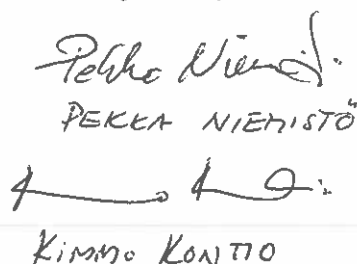 Pekka Niemistö
PEKKA NIEMISTÖ
KIMMO KONTIO